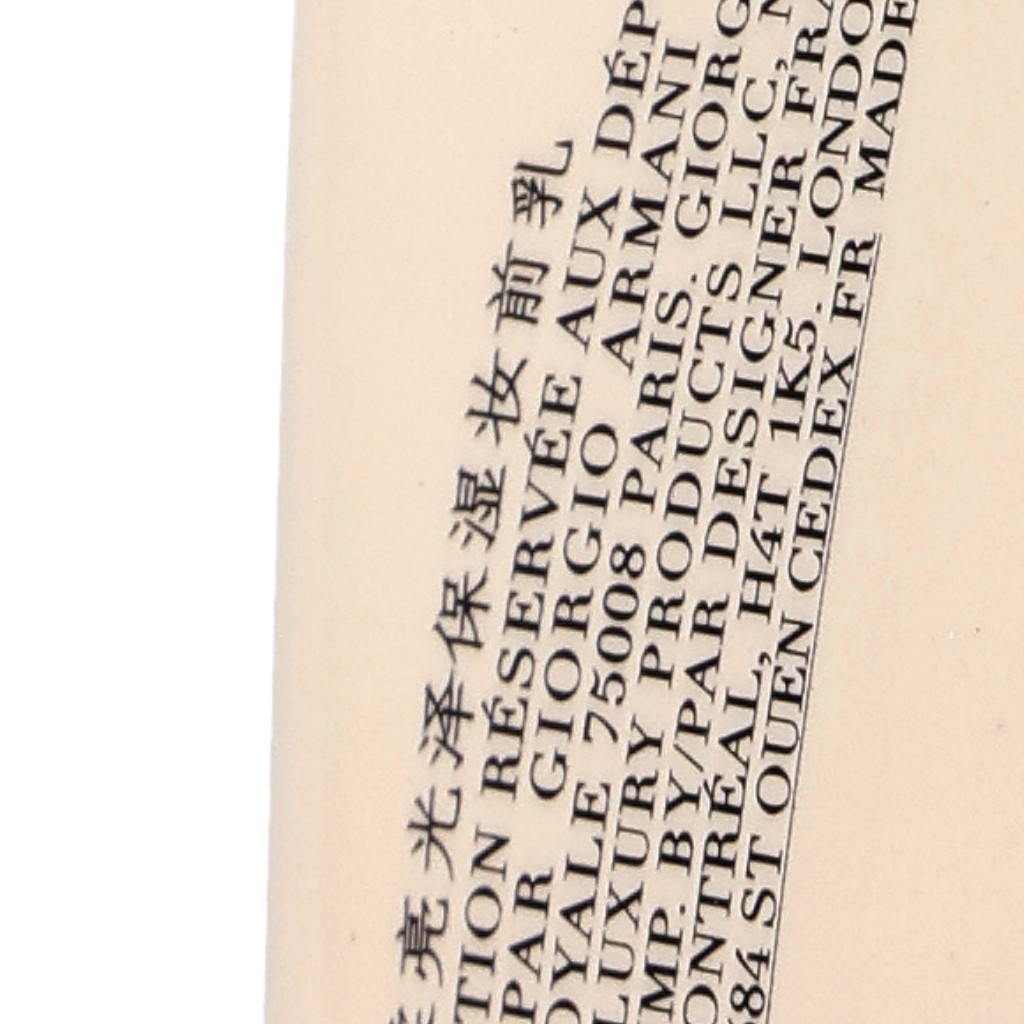 亮光泽保湿妆前乳
TION RÉSERVÉE AUX DÉP
PAR GIORGIO ARMANI
OYALE 75008 PARIS. GIORG
LUXURY PRODUCTS LLC, N
MP. BY/PAR DESIGNER FRA
ONTRÉAL, H4T 1K5. LONDO
684 ST OUEN CEDEX FR MADE